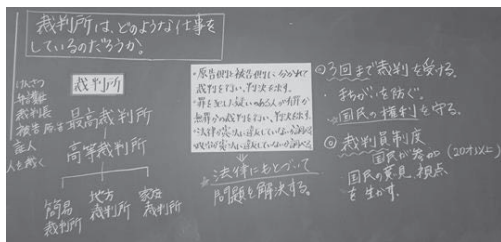 裁判所は、どのような仕事を
しているのだろうか。
けんさつ
弁護士
裁判長
被告 原告
証人
人を裁く
裁判所
最高裁判所
高等裁判所
簡易
裁判所
地方
裁判所
家庭
裁判所
・原告側と被告側に分かれて
裁判を行い、判決を出す。
・罪を犯した疑いのある人が有罪か
無罪かの裁判を行い、判決を出す。
・法律が憲法に違反していないか調べる
政治が憲法に違反していないか調べる
☆法律にもとづいて
問題を解決する。
◎3回まで裁判を受ける。
まちがいを防ぐ。
国民の権利を守る。
◎裁判員制度
国民が参加(20才以上)
国民の意見、視点
を生かす。